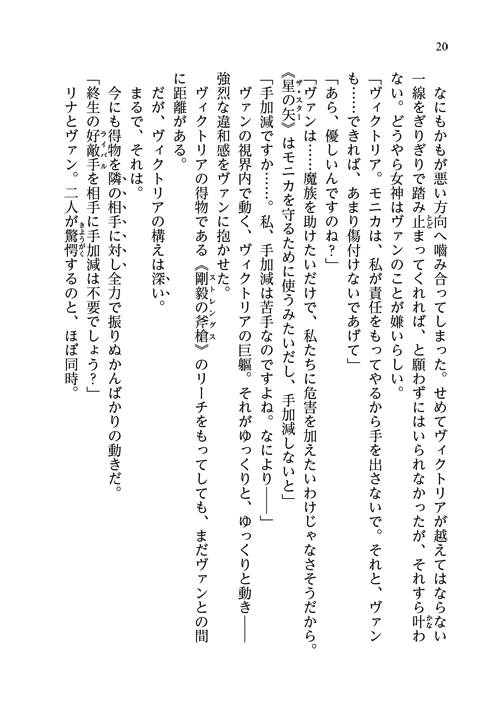 20
なにもかもが悪い方向へ嚙み合ってしまった。せめてヴィクトリアが越えてはならない
一線をぎりぎりで踏み止まってくれれば、と願わずにはいられなかったが、それすら叶わ
ない。どうやら女神はヴァンのことが嫌いらしい。
「ヴィクトリア。モニカは、私が責任をもってやるから手を出さないで。それと、ヴァン
も……できれば、あまり傷付けないであげて」
「あら、優しいんですのね？」
「ヴァンは……魔族を助けたいだけで、私たちに危害を加えたいわけじゃなさそうだから。
《星の矢》はモニカを守るために使うみたいだし、手加減しないと」
「手加減ですか……。私、手加減は苦手なのですよね。なにより――」
ヴァンの視界内で動く、ヴィクトリアの巨軀。それがゆっくりと、ゆっくりと動き――
強烈な違和感をヴァンに抱かせた。
ヴィクトリアの得物である《剛毅の斧槍》のリーチをもってしても、まだヴァンとの間
に距離がある。
だが、ヴィクトリアの構えは深い。
まるで、それは。
今にも得物を隣の相手に対し全力で振りぬかんばかりの動きだ。
「終生の好敵手を相手に手加減は不要でしょう？」
リナとヴァン。二人が驚愕するのと、ほぼ同時。